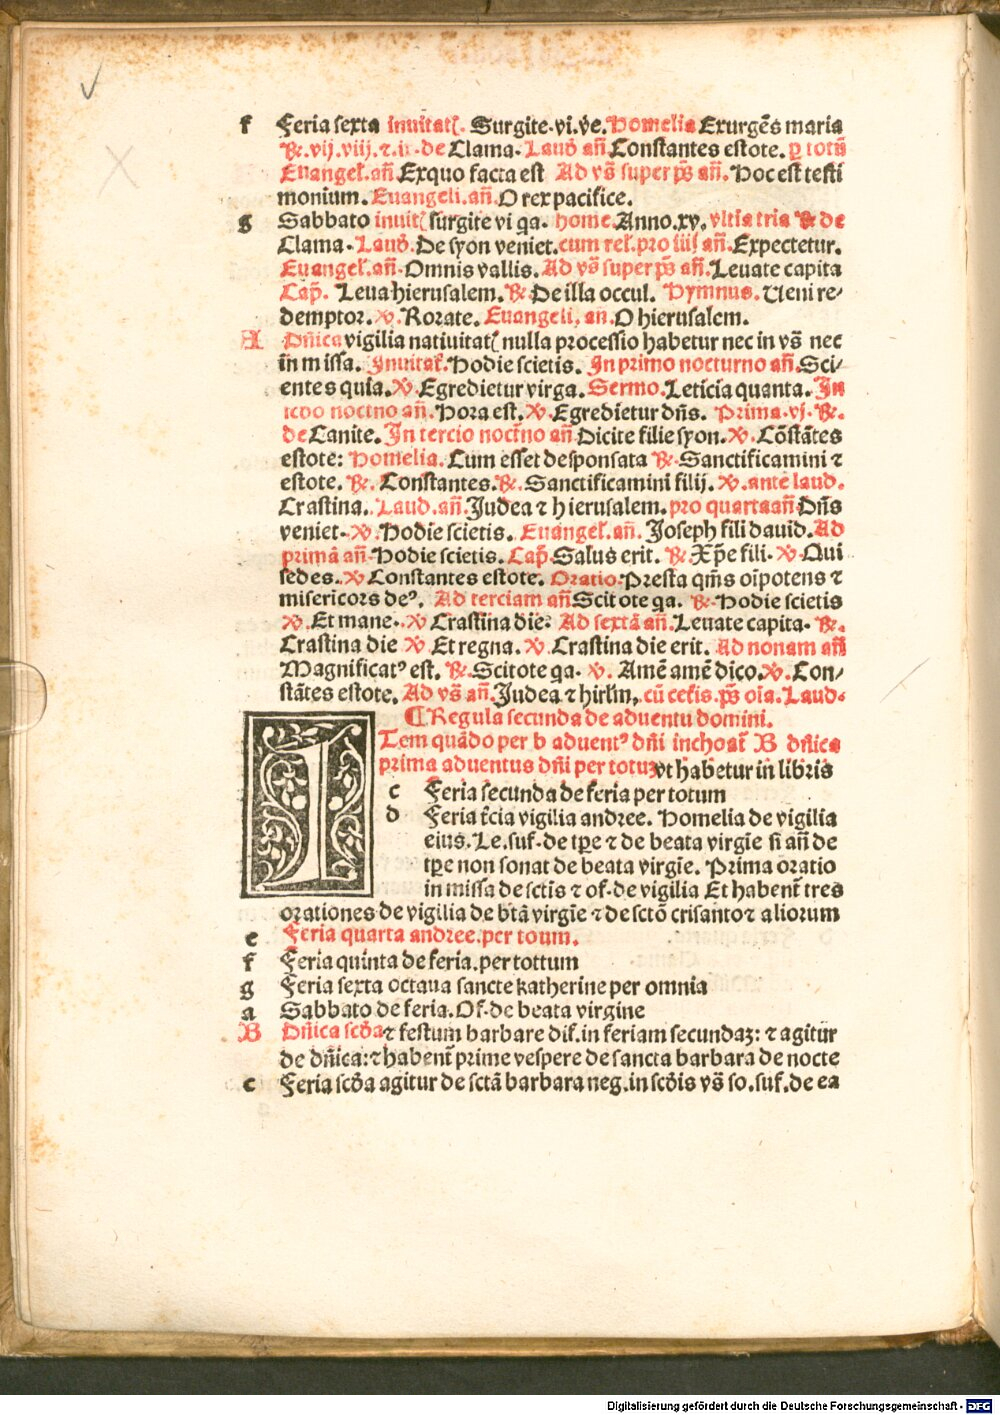 f Feria sexta inuitatꝭ. Surgite.vi.ve. Homelia Exurgẽs maria
℟.vij.viij.⁊.ii.de Clama. Laud̕ añ. Constantes estote. ꝑ totũ
Euangel̕.añ. Exquo facta est Ad vs̃ super ps̃ añ. Hoc est testi
monium. Euangeli.añ. O rex pacifice.
g Sabbato inuitꝭ surgite vi qa. home. Anno.xv. vltīa tria ℟ de
Clama. Laud̕. De syon veniet. cum rel̕. pro iiiꝭ añ. Expectetur.
Euangel̕.añ. Omnis vallis. Ad vs̃ super ps̃ añ. Leuate capita
Cap̃. Leua hierusalem. ℟. De illa occul. Hymnus. Ueni re⸗
demptor. ℣. Rorate. Euangeli, an. O hierusalem.
A Dñica vigilia natiuitatꝭ nulla processio habetur nec in vs̃ nec
in missa. Inuitat̕. Hodie scietis. In primo nocturno añ. Sci⸗
entes quia. ℣. Egredietur virga. Sermo. Leticia quanta. In
scd̕o noctno añ. Hora est. ℣. Egredietur dñs. Prima.vj.℟.
de Canite. In tercio noct̃no añ Dicite filie syon. ℣. Cõstãtes
estote: Homelia. Cum esset desponsata ℟. Sanctificamini ⁊
estote. ℟. Constantes. ℟. Sanctificamini filij. ℣. ante laud.
Crastina. Laud.añ. Judea ⁊ hierusalem. pro quarta añ Dñs
veniet. ℣. Hodie scietis. Euangel̕.añ. Joseph fili dauid. Ad
primã añ. Hodie scietis. Cap̃. Salus erit. ℟. Xp̃e fili. ℣. Qui
sedes. ℣. Constantes estote. Oratio. Presta qm̃s oĩpotens ⁊
misericors deꝰ. Ad terciam añ Scitote qa. ℟. Hodie scietis
℣. Et mane. ℣ Crastina die: Ad sextã añ. Leuate capita. ℟.
Crastina die ℣. Et regna. ℣. Crastina die erit. Ad nonam añ
Magnificatꝰ est. ℟. Scitote qa. ℣. Amẽ amẽ dico. ℣. Con⸗
stãtes estote. Ad vs̃ añ. Judea ⁊ hirlm̃, cũ cet̕is. ps̃ oĩa. Laud.
¶ Regula secunda de aduentu domini.
ITem quãdo per b aduentꝰ dñi inchoat̃ B dñica
prima aduentus dñi per totuꝫ vt habetur in libris
c Feria secunda de feria per totum
d Feria t̃cia vigilia andree. Homelia de vigilia
eius. Le. suf. de tp̃e ⁊ de beata virgĩe si añ de
tp̃e non sonat de beata virgĩe. Prima oratio
in missa de sctĩs ⁊ of. de vigilia Et habent̃ tres
orationes de vigilia de btã virgĩe ⁊ de sctõ crisanto ⁊ aliorum
e Feria quarta andree. per toum.
f Feria quinta de feria. per tottum
g Feria sexta octaua sancte katherine per omnia
a Sabbato de feria. Of. de beata virgine
B Dñica scd̕a ⁊ festum barbare dif. in feriam secundaꝫ: ⁊ agitur̃
de dñica: ⁊ habent̃ prime vespere de sancta barbara de nocte
c Feria scd̕a agitur de sctã barbara neg. in scd̕is vs̃ so. suf. de ea
Digitalisierung gefördert durch die Deutsche Forschungsgemeinschaft - DFG